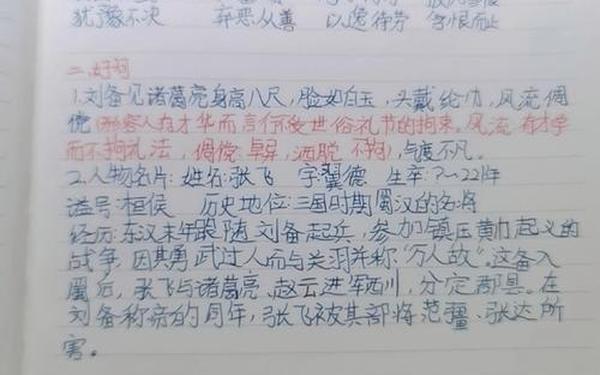 犹豫不决 弃恶从善 以逸待劳 含恨而止
二、好词
1.刘备见诸葛亮身高八尺,脸如白玉,头戴纶巾,风流倜
傥(形容人有才华而言行不受世俗礼节的拘束。风流 有才学
而不拘礼法,倜傥 卓异,洒脱 不拘),气度不凡。
2.人物名片:姓名:张飞 字:翼德 生卒:?~221年
谥号:桓侯 历史地位:三国时期蜀汉的名将
经历:东汉末年跟随刘备起兵,参加镇压黄巾起义的
战争,因其勇武过人而与关羽并称“万人敌”。这备入
蜀后,张飞与诸葛亮、赵云进军西川,分定郡县。在
刘备称帝的同年,张飞被其部将范疆、张达所
害。